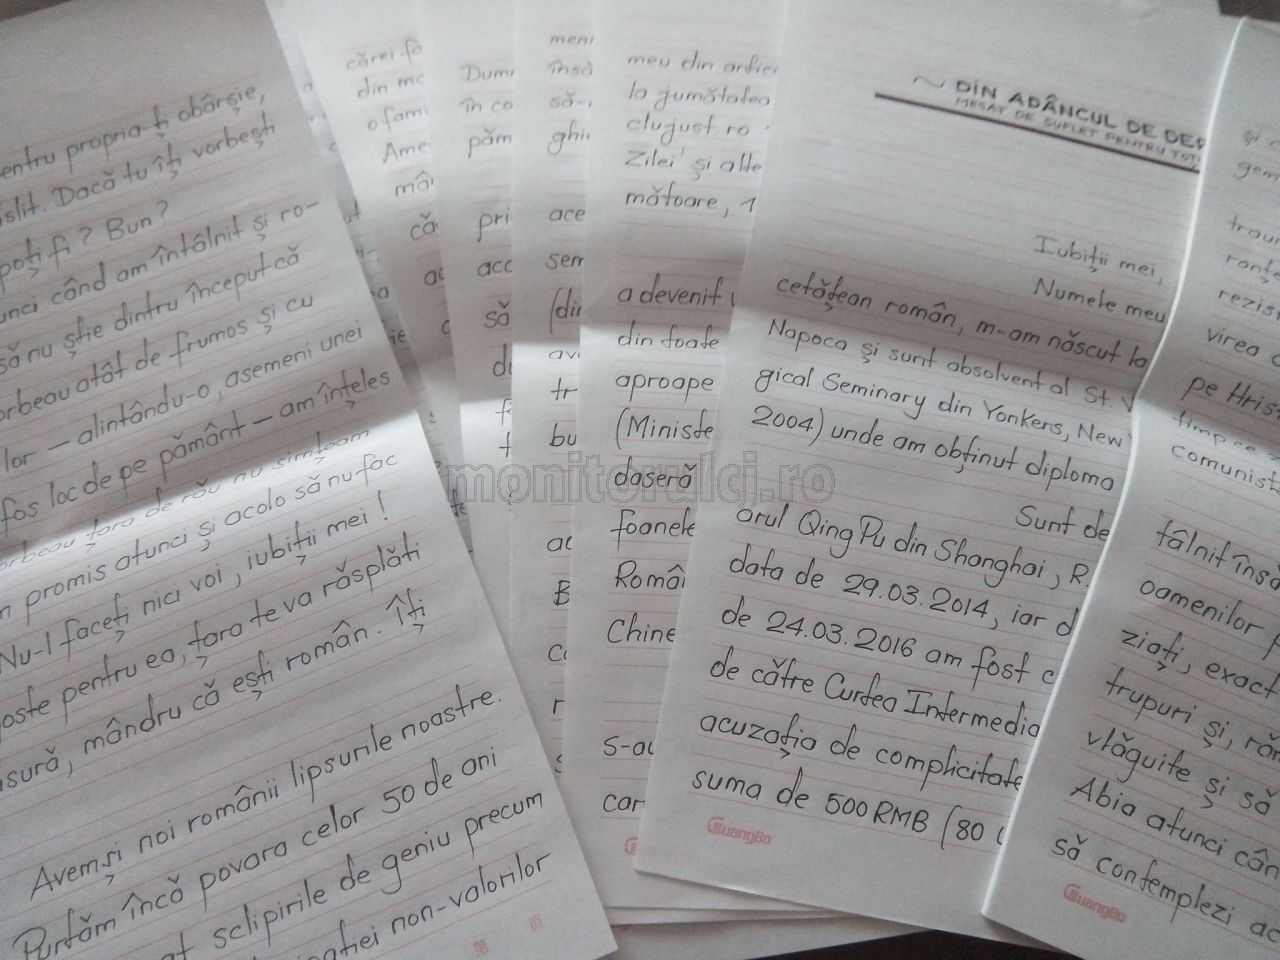 entru propria-ți obârșie,
slit. Dacă tu îți vorbești
poți fi? Bun?
unci când am întâlnit și ro-
să nu știe dintru început că
orbeau atât de frumos și cu
lor — alintându-o, asemeni unei
fos loc de pe pământ — am înțeles
orbeau țara de rău nu simțeam
n promis atunci și acolo să nu fac
Nu-l faceți nici voi, iubiții mei!
oste pentru ea, țara te va răsplăti
sură, mândru că ești român. Îți
Avem și noi românii lipsurile noastre.
Purtăm încă povara celor 50 de ani
at sclipirile de geniu precum
ației non-valorilor
第 页
cărei fo
din mo
o fami
Ame
mâ
că
Dum
în co
păm
pri
acc
să
d
meni
însă
să-i
ghi
ace
sem
(din
av
tr
bu
ac
B
meu din arfier
la jumătatea
clujust ro
Zilei' și alte
mătoare, 1
a devenit
din toate
aproape
(Ministe
daseră
foanele
Româ
Chine
s-au
car
~ DIN ADÂNCUL DE DEP
MESAJ DE SUFLET PENTRU TOȚ
Iubiții mei,
Numele meu
cetățean român, m-am născut la
Napoca și sunt absolvent al St. V
gical Seminary din Yonkers, New
2004) unde am obținut diploma
Sunt de
arul Qing Pu din Shanghai, R.
data de 29.03.2014, iar d
de 24.03.2016 am fost c
de către Curtea Intermedia
acuzația de complicitate
suma de 500 RMB (80
GuangBo
și
gem
trau
ranț
rezis
virea
pe Hris
timp ce
comunist
tâlnit însă
oamenilor
ziați, exact
trupuri și, răn
vlăguite și să
Abia atunci cân
să contemplezi ac
GuangBo
monitorulcj.ro